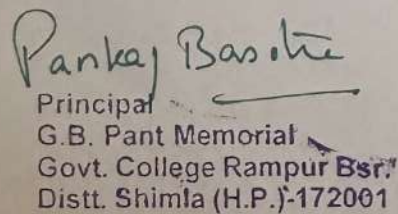 Pankaj
Principal
G.B. Pant Memorial
Govt. College Rampur Bsr.
Distt. Shimla (H.P.)-172001